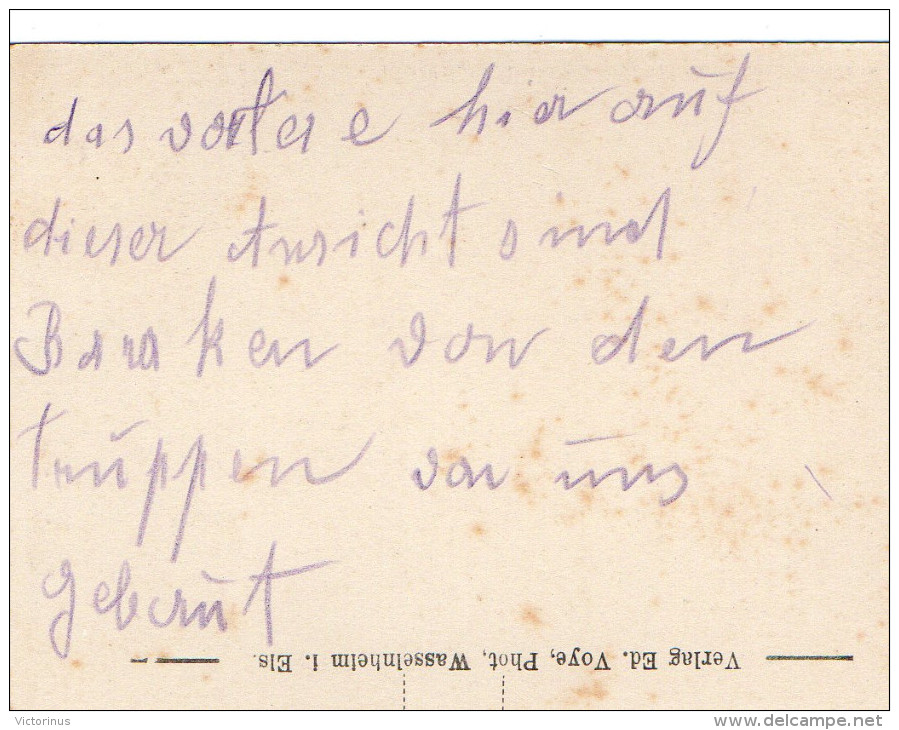 das vortere hier auf
dieser Ansicht sind
Baraken von den
truppen vor uns
Gebaut
Verlag Ed. Voye, Phot, Wasselnheim i. Els.
Victorinus
delcampe.net